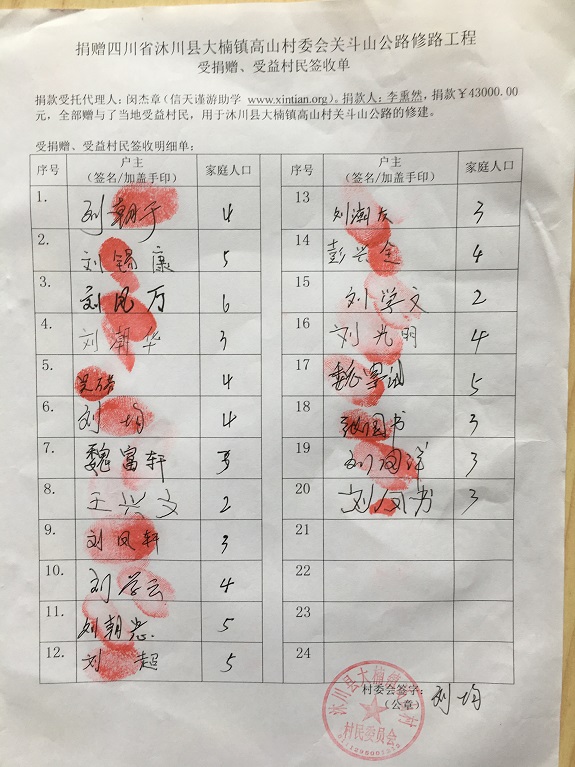 捐赠四川省沐川县大楠镇高山村委会关斗山公路修路工程
受捐赠、受益村民签收单
捐款受托代理人：闵杰章（信天谨游助学 www.xintian.org）。捐款人：李熏然，捐款￥43000.00
元，全部赠与了当地受益村民，用于沐川县大楠镇高山村关斗山公路的修建。
受捐赠、受益村民签收明细单：
序号 户主（签名/加盖手印） 家庭人口 序号 户主（签名/加盖手印） 家庭人口
1. 刘朝于 4
2. 刘锡康 5
3. 刘凡万 6
4. 刘朝华 3
5. 4
6. 刘均 4
7. 魏富轩 3
8. 王兴文 2
9. 刘凤轩 3
10. 刘学云 4
11. 刘朝忠 5
12. 刘超 5
13 刘瀚 3
14 彭兴全 4
15 刘学文 2
16 刘光明 4
17 魏 5
18 张国书 3
19 刘洋 3
20 刘凤书 3
21
22
23
24
村委会签字：刘均
（公章）
沐川县大楠镇高山村
村民委员会